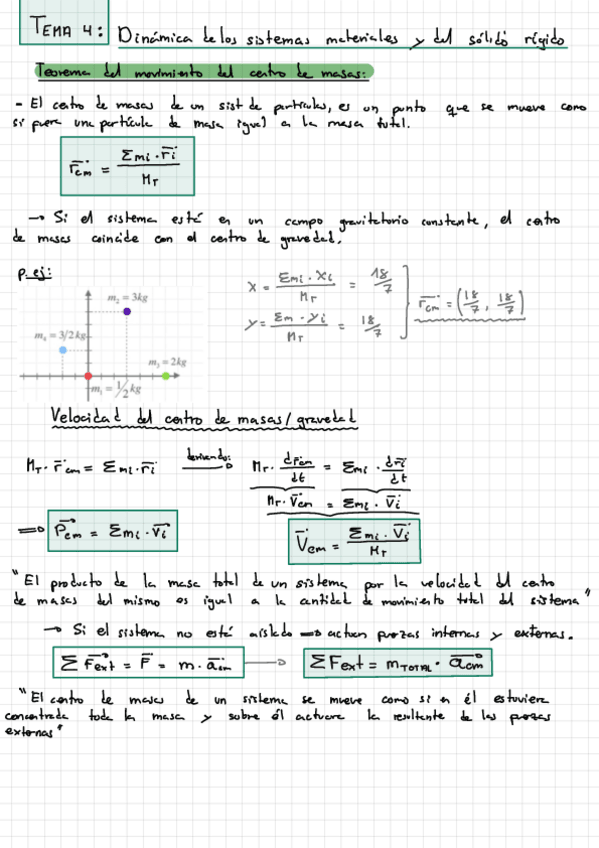 TEMA 4: Dinámica de los sistemas materiales y del sólido rígido
Teorema del movimiento del centro de masas:
- El centro de masas de un sist de partículas, es un punto que se mueve como
si fuera una partícula de masa igual a la masa total.
r⃗cm = Σmi · r⃗i / MT
→ Si el sistema está en un campo gravitatorio constante, el centro
de masas coincide con el centro de gravedad.
p. ej:
m₂ = 3kg
m₄ = 3/2 kg
m₃ = 2kg
m₁ = 1/2 kg
x = Σmi · xi / MT = 18/7
y = Σm · yi / MT = 18/7
r⃗cm = (18/7, 18/7)
Velocidad del centro de masas/gravedad
MT · r̄cm = Σmi · r̄i derivando: MT · dr̄cm/dt = Σmi · dr̄i/dt
MT · V̄cm = Σmi · V̄i
⇒ P⃗cm = Σmi · v⃗i
V̄cm = Σmi · V̄i / MT
"El producto de la masa total de un sistema por la velocidad del centro
de masas del mismo es igual a la cantidad de movimiento total del sistema"
→ Si el sistema no está aislado ⇒ actuan fuerzas internas y externas.
Σ F⃗ext = F⃗ = m · a⃗cm → ΣFext = mTOTAL · a⃗cm
"El centro de masas de un sistema se mueve como si en él estuviera
concentrada toda la masa y sobre él actuara la resultante de las fuerzas
externas"